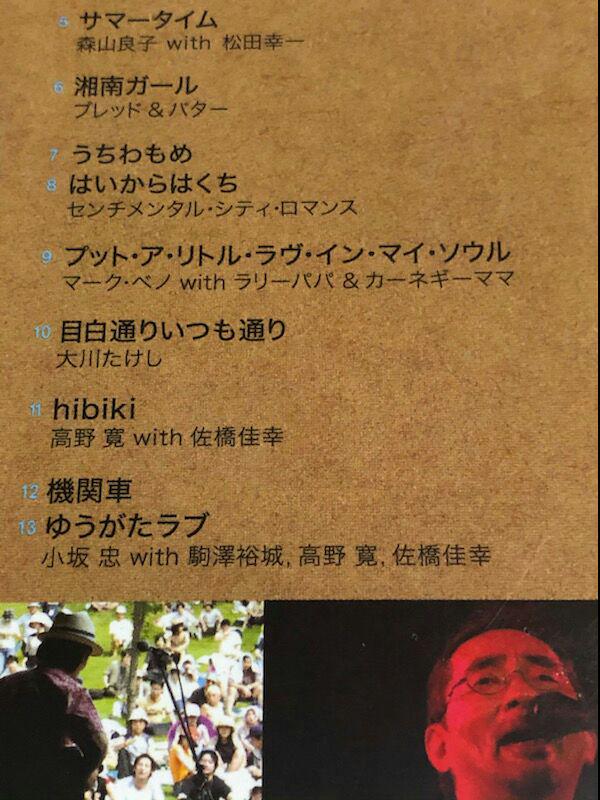 5 サマータイム
森山良子 with 松田幸一
6 湘南ガール
ブレッド & バター
7 うちわもめ
8 はいからはくち
センチメンタル・シティ・ロマンス
9 プット・ア・リトル・ラヴ・イン・マイ・ソウル
マーク・ベノ with ラリーパパ & カーネギーママ
10 目白通りいつも通り
大川たけし
11 hibiki
高野 寛 with 佐橋佳幸
12 機関車
13 ゆうがたラブ
小坂 忠 with 駒澤裕城, 高野 寛, 佐橋佳幸